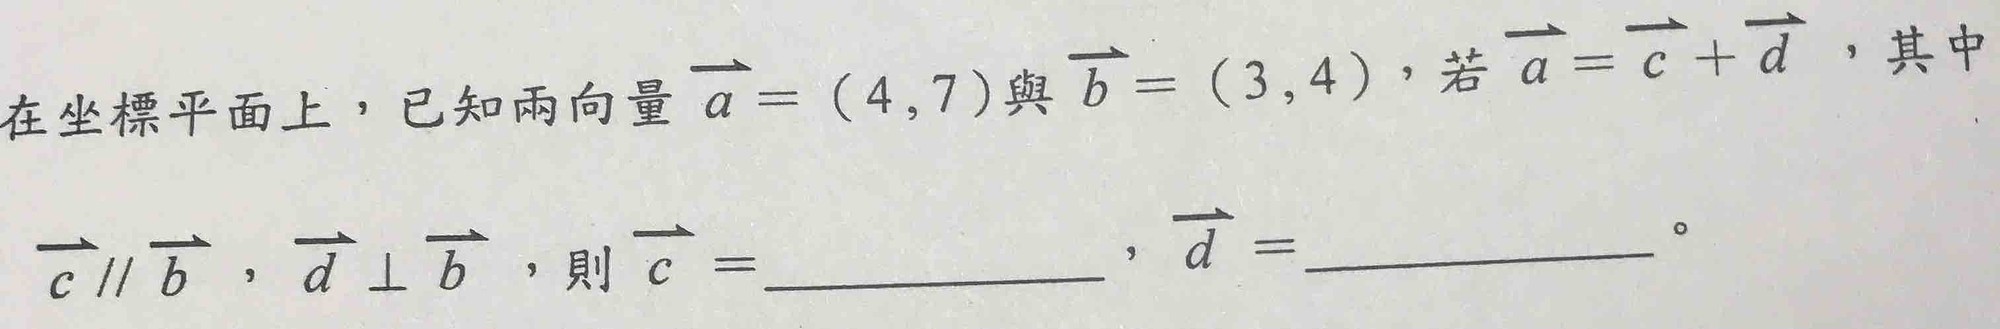 在坐標平面上，已知兩向量 $\overrightarrow{a}=(4,7)$與 $\overrightarrow{b}=(3,4)$，若 $\overrightarrow{a}=\overrightarrow{c}+\overrightarrow{d}$，其中
$\overrightarrow{c}//\overrightarrow{b}$，$\overrightarrow{d}\perp\overrightarrow{b}$，則 $\overrightarrow{c}=$__________，$\overrightarrow{d}=$__________。